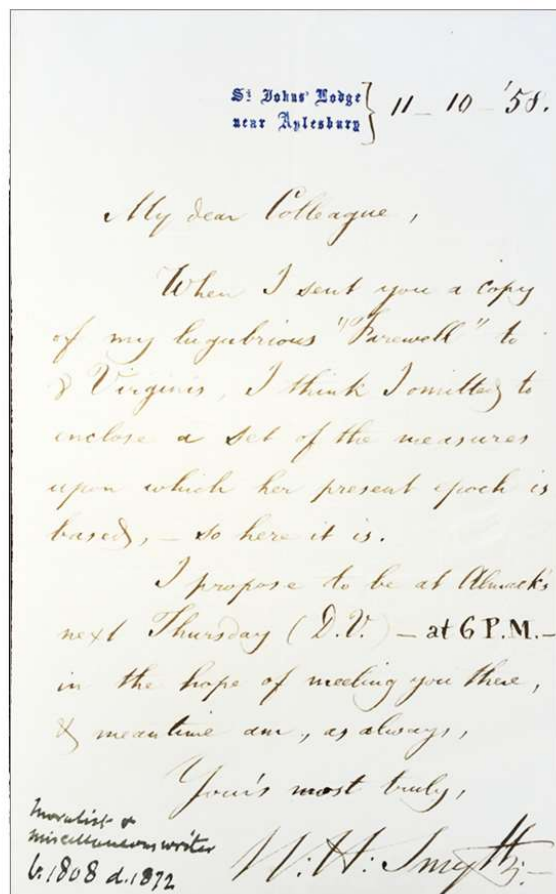 St Johns' Lodge
near Aylesbury
11–10–'58.
My dear Colleague,
When I sent you a copy
of my lugubrious "Farewell" to
γ Virginis, I think I omitted to
enclose a set of the measures
upon which her present epoch is
based, – so here it is.
I propose to be at Almack's
next Thursday (D.V.) – at 6 P.M. –
in the hope of meeting you there,
& meantime am, as always,
Your's most truly,
W: H: Smyth
Moralist &
miscellaneous writer
b. 1808 d. 1872